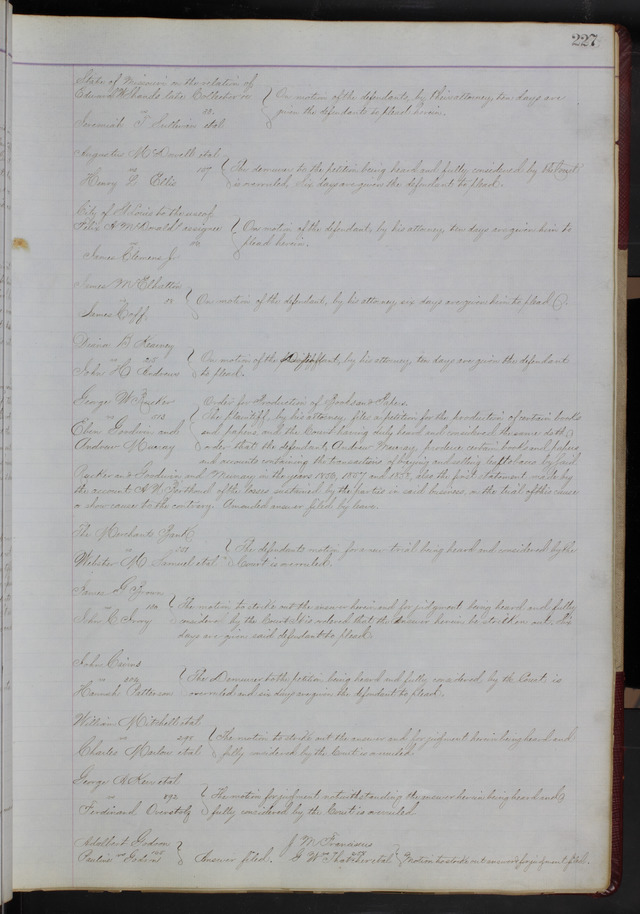 227
State of Missouri on the relation of
Edward W. Shands late Collector &c
vs.
Jeremiah T. Sullivan et al.
On motion of the defendants, by their attorney, ten days are
given the defendants to plead herein.
Augustus McDowell et al
vs 187
Henry G. Ellis
The demurrer to the petition being heard and fully considered by the Court
is overruled, six days are given the defendant to plead.
City of St Louis to the use of
John A. McDonald assignee
vs
James Clemens Jr
On motion of the defendant, by his attorney, ten days are given him to
plead herein.
James McElhatton
vs
James Goff
On motion of the defendant, by his attorney six days are given him to plead
B. Kearney
vs
John C. Andrews
On motion of the defendant, by his attorney, ten days are given the defendant
to plead.
George W. Rucker
vs
Eben Goodwin and
Andrew Murray
Order for Production of Books and Papers
The plaintiff, by his attorney, files a petition for the production of certain books
and papers, and the Court having duly heard and considered the same doth
order that the defendant, Andrew Murray, produce certain books and papers
and accounts containing the transactions of buying and selling by said
Rucker and Goodwin and Murray in the years 1856, 1857 and 1858, also the first statement made by
the account of the losses sustained by the parties in said business, on the trial of this cause
or show cause to the contrary. Amended answer filed by leave.
The Merchants Bank
vs
Webster M. Samuel et al
The defendants motion for a new trial being heard and considered by the
Court is overruled.
James G. Brown
vs
John C. Ivory
The motion to strike out the answer herein and for judgment being heard and fully
considered by the Court it is ordered that the answer herein be stricken out. Six
days are given said defendant to plead.
John Cairns
vs
Hannah Patterson
The Demurrer to the petition being heard and fully considered by the Court is
overruled and six days are given the defendant to plead.
William Mitchell et al
vs
Charles Marlow et al
The motion to strike out the answer and for judgment herein being heard and
fully considered by the Court is overruled.
George R. Kerr et al
vs 292
Ferdinand Overstolz
The motion for judgment notwithstanding the answer herein being heard and
fully considered by the Court is overruled
Adalbert Godron
vs
Pauline Godron
Answer filed.
J. M. Franciscus
vs
G. Wm Thatcher et al
Motion to strike out answer & for judgment filed.